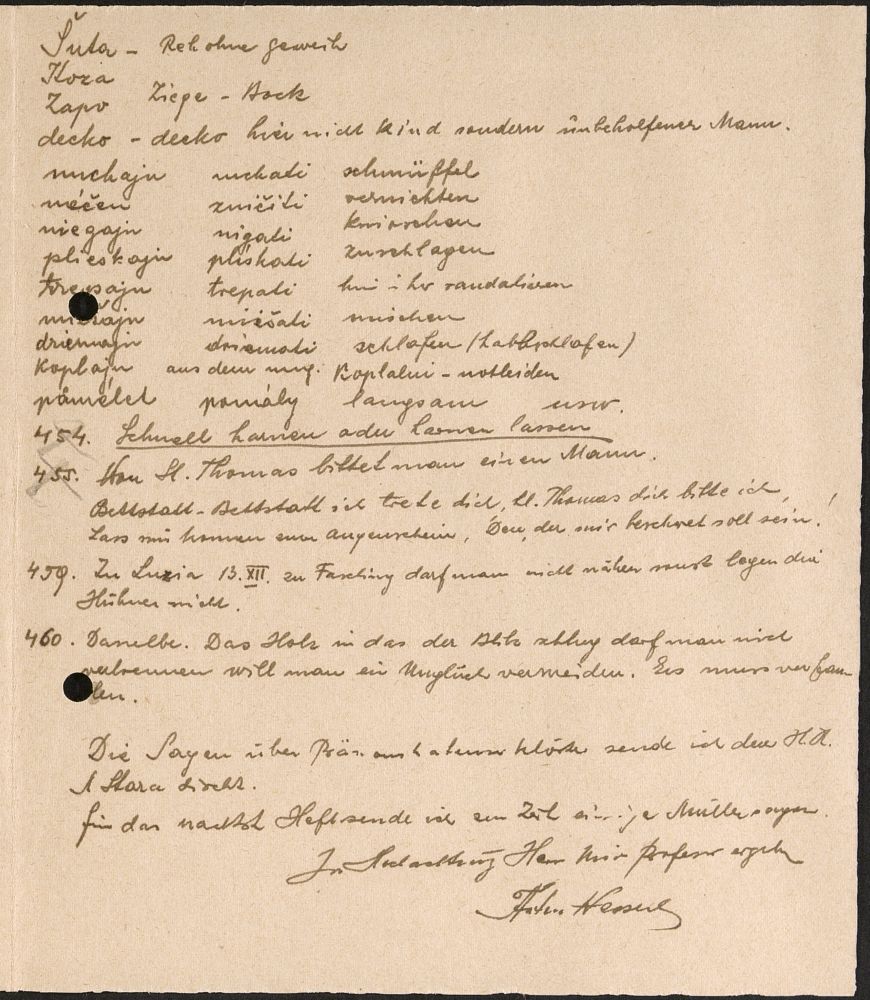 Šuta - Reh ohne geweih
Koza
Zapo Ziege - Bock
decko - decko hier nicht Kind sondern unbeholfener Mann.
nuchaju nuchati schnüffel
néčen zničiti vernichten
niegaju nigati knirschen
plieskaju pliskati zuschlagen
trepaju trepati hin i her randalieren
miešaju miešati mischen
driemaju driemati schlafen (halbschlafen)
Koplaju aus dem ung. Koplalni - notleiden
pámélet pomály langsam usw.
454. Schnell harnen oder harnen lassen
455. Von St. Thomas bittet man einen Mann.
Bettstatt - Bettstatt ich trete dich, hl. Thomas dich bitte ich,
Lass mir kommen zum augenschein, Den, der mir beschert soll sein!
459. Zu Luzia 13. XII. zu Fasching darf man nicht nähen sonst legen die
Hühner nicht.
460. Dasselbe. Das Holz in das der Blitz schlug darf man nicht
verbrennen will man ein Unglück vermeiden. Es muss verfau-
len.
Die Sagen über sende ich dem H.
Stara direkt.
für das nächst Heft sende ich zur Zeit einige Müllersagen.
In Hochachtung Herr Profesor ergeben